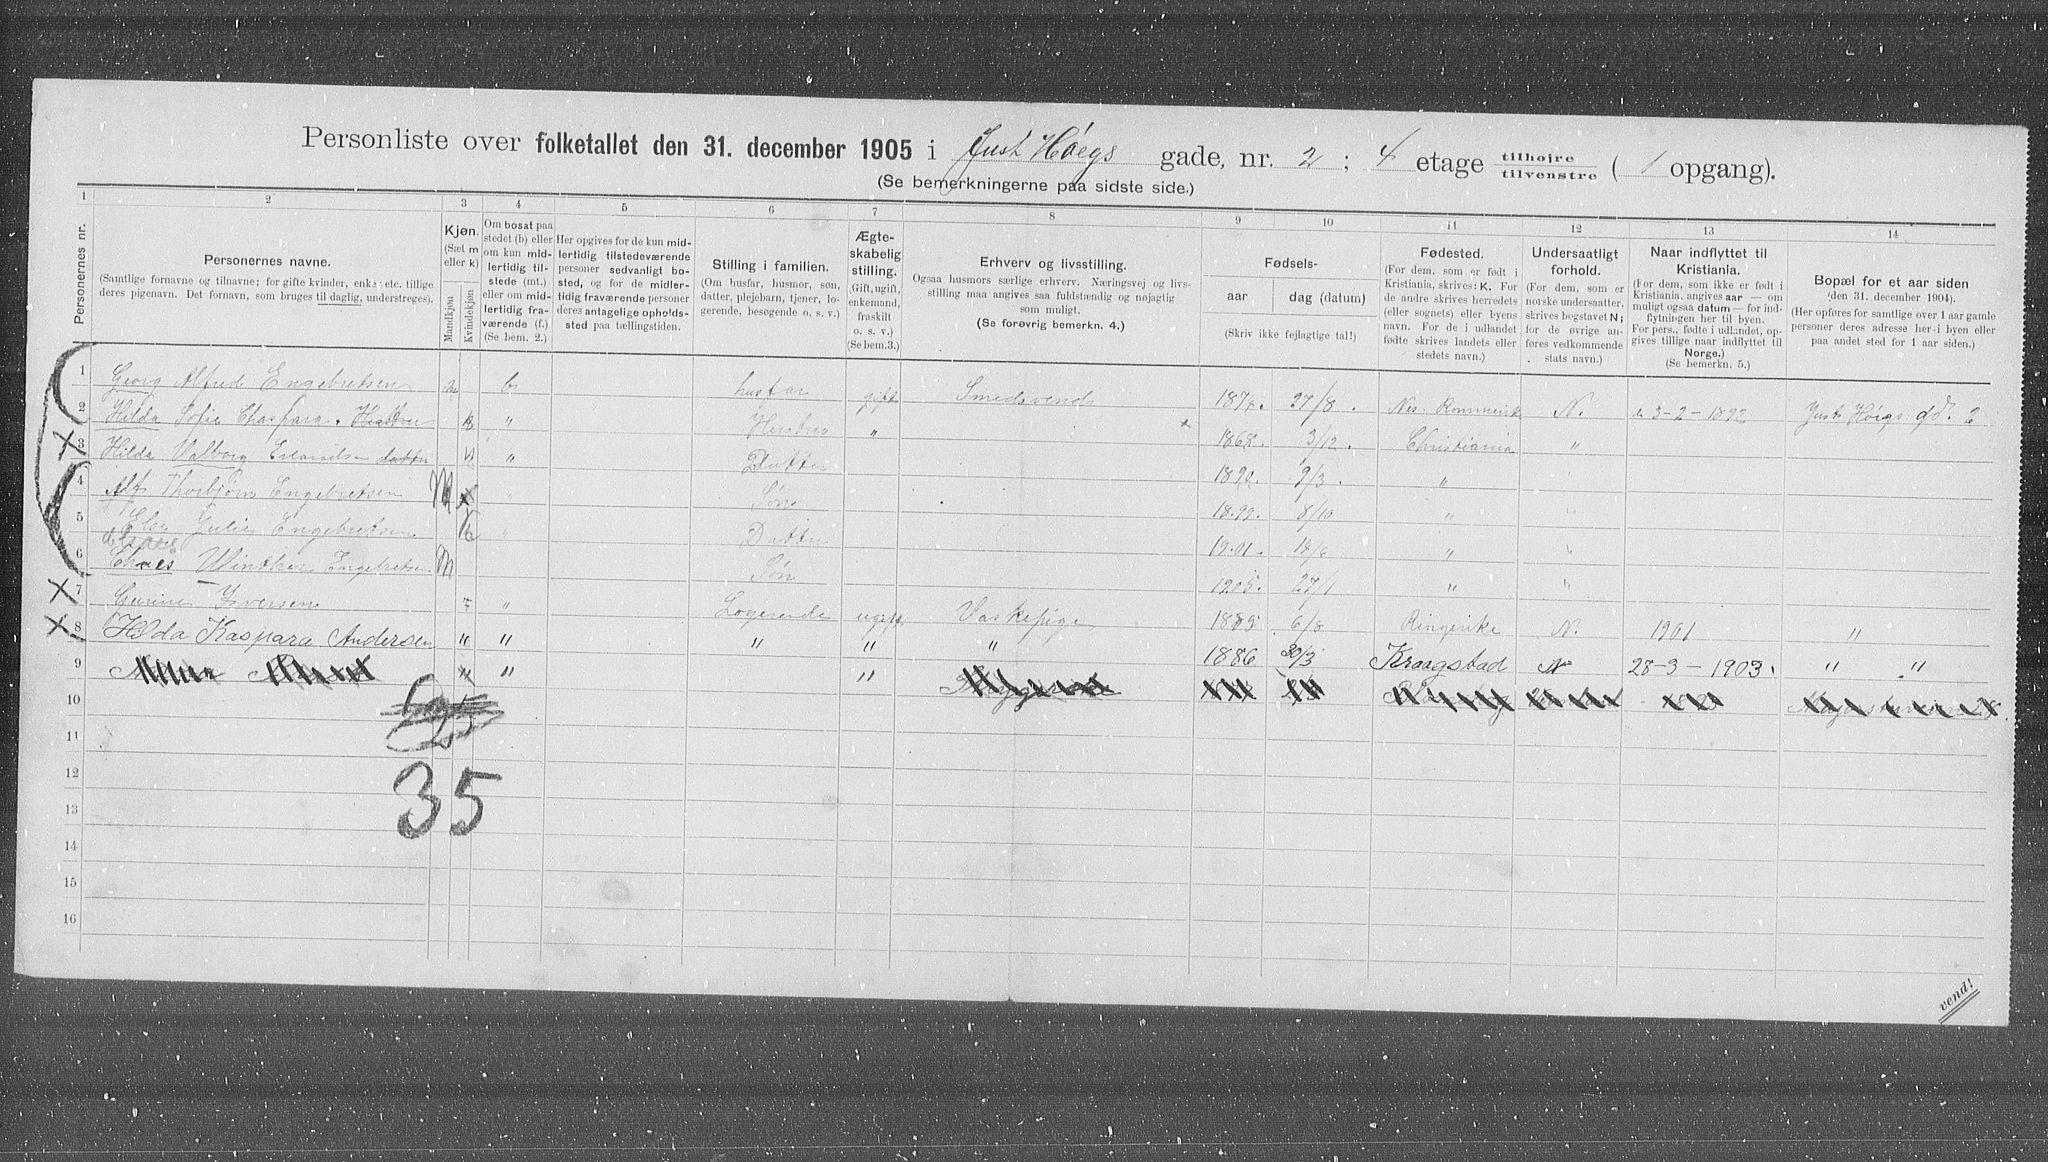 Personliste over folketallet den 31. december 1905 i Just Höegs gade, nr. 2 ; 4 etage tilhøjre tilvenstre ( 1 opgang).
(Se bemerkningerne paa sidste side.)
1 2 3 4 5 6 7 8 9 10 11 12 13 14
Personernes nr.
Personernes navne.
(Samtlige fornavne og tilnavne; for gifte kvinder, enker etc. tillige deres pigenavn. Det fornavn, som bruges til daglig, understreges).
Kjøn.
(Sæt m eller k)
Mandkjøn
Kvindekjøn
Om bosat paa stedet (b) eller om kun midlertidig tilstede (mt.) eller om midlertidig fraværende (f.)
(Se bem. 2.)
Her opgives for de kun midlertidig tilstedeværende personer sedvanligt bosted, og for de midlertidig fraværende personer deres antagelige opholdssted paa tællingstiden.
Stilling i familien.
(Om husfar, husmor, søn, datter, plejebarn, tjener, logerende, besøgende o. s. v.)
Ægteskabelig stilling.
(Gift, ugift, enkemand, fraskilt o. s. v.)
(Se bem.3.)
Erhverv og livsstilling.
Ogsaa husmors særlige erhverv. Næringsvej og livsstilling maa angives saa fuldstændig og nøjagtig som muligt.
(Se forøvrig bemerkn. 4.)
Fødsels-
aar
dag (datum)
(Skriv ikke fejlagtige tal!)
Fødested.
(For dem, som er født i Kristiania, skrives: K. For de andre skrives herredets (eller sognets) eller byens navn. For de i udlandet fødte skrives landets eller stedets navn.)
Undersaatligt forhold.
(For dem, som er norske undersaatter, skrives bogstavet N; for de øvrige anføres vedkommende stats navn.)
Naar indflyttet til Kristiania.
(For dem, som ikke er født i Kristiania, angives aar — om muligt ogsaa datum — for indflytningen her til byen. For pers., fødte i udlandet, opgives tillige naar indflyttet til Norge.)
(Se bemerkn. 5.)
Bopæl for et aar siden
(den 31. december 1904).
(Her opføres for samtlige over 1 aar gamle personer deres adresse her i byen eller paa andet sted for 1 aar siden.)
1 Georg Alfred Engebretsen m b husfar gift Smedsvend 1874. 27/8. Nes Romerike N. 3-2-1892 Just Höigs gd. 2
2 Hilda Sofie Chaspara k " Hustru " 1868. 3/12. Christiania "
3 Hilda Valborg datter k " Datter 1892. 9/3. "
4 Alf Thorbjørn Engebretsen M " Søn 1899. 8/10 " "
5 Julie Engebretsen K " Datter 1901. 14/6 " "
6 Winther Engebretsen M Søn 1905. 27/1 " "
7 Iversen " Logerende ugift Vaskepige 6/8 Ringerike N. 1901 "
8 Hilda Kaspara Andersen " " " " " 1886 30/3 Kraagstad N 28-3-1903. " "
9 " "
10
11
12
13
14
15
16
35
vend!